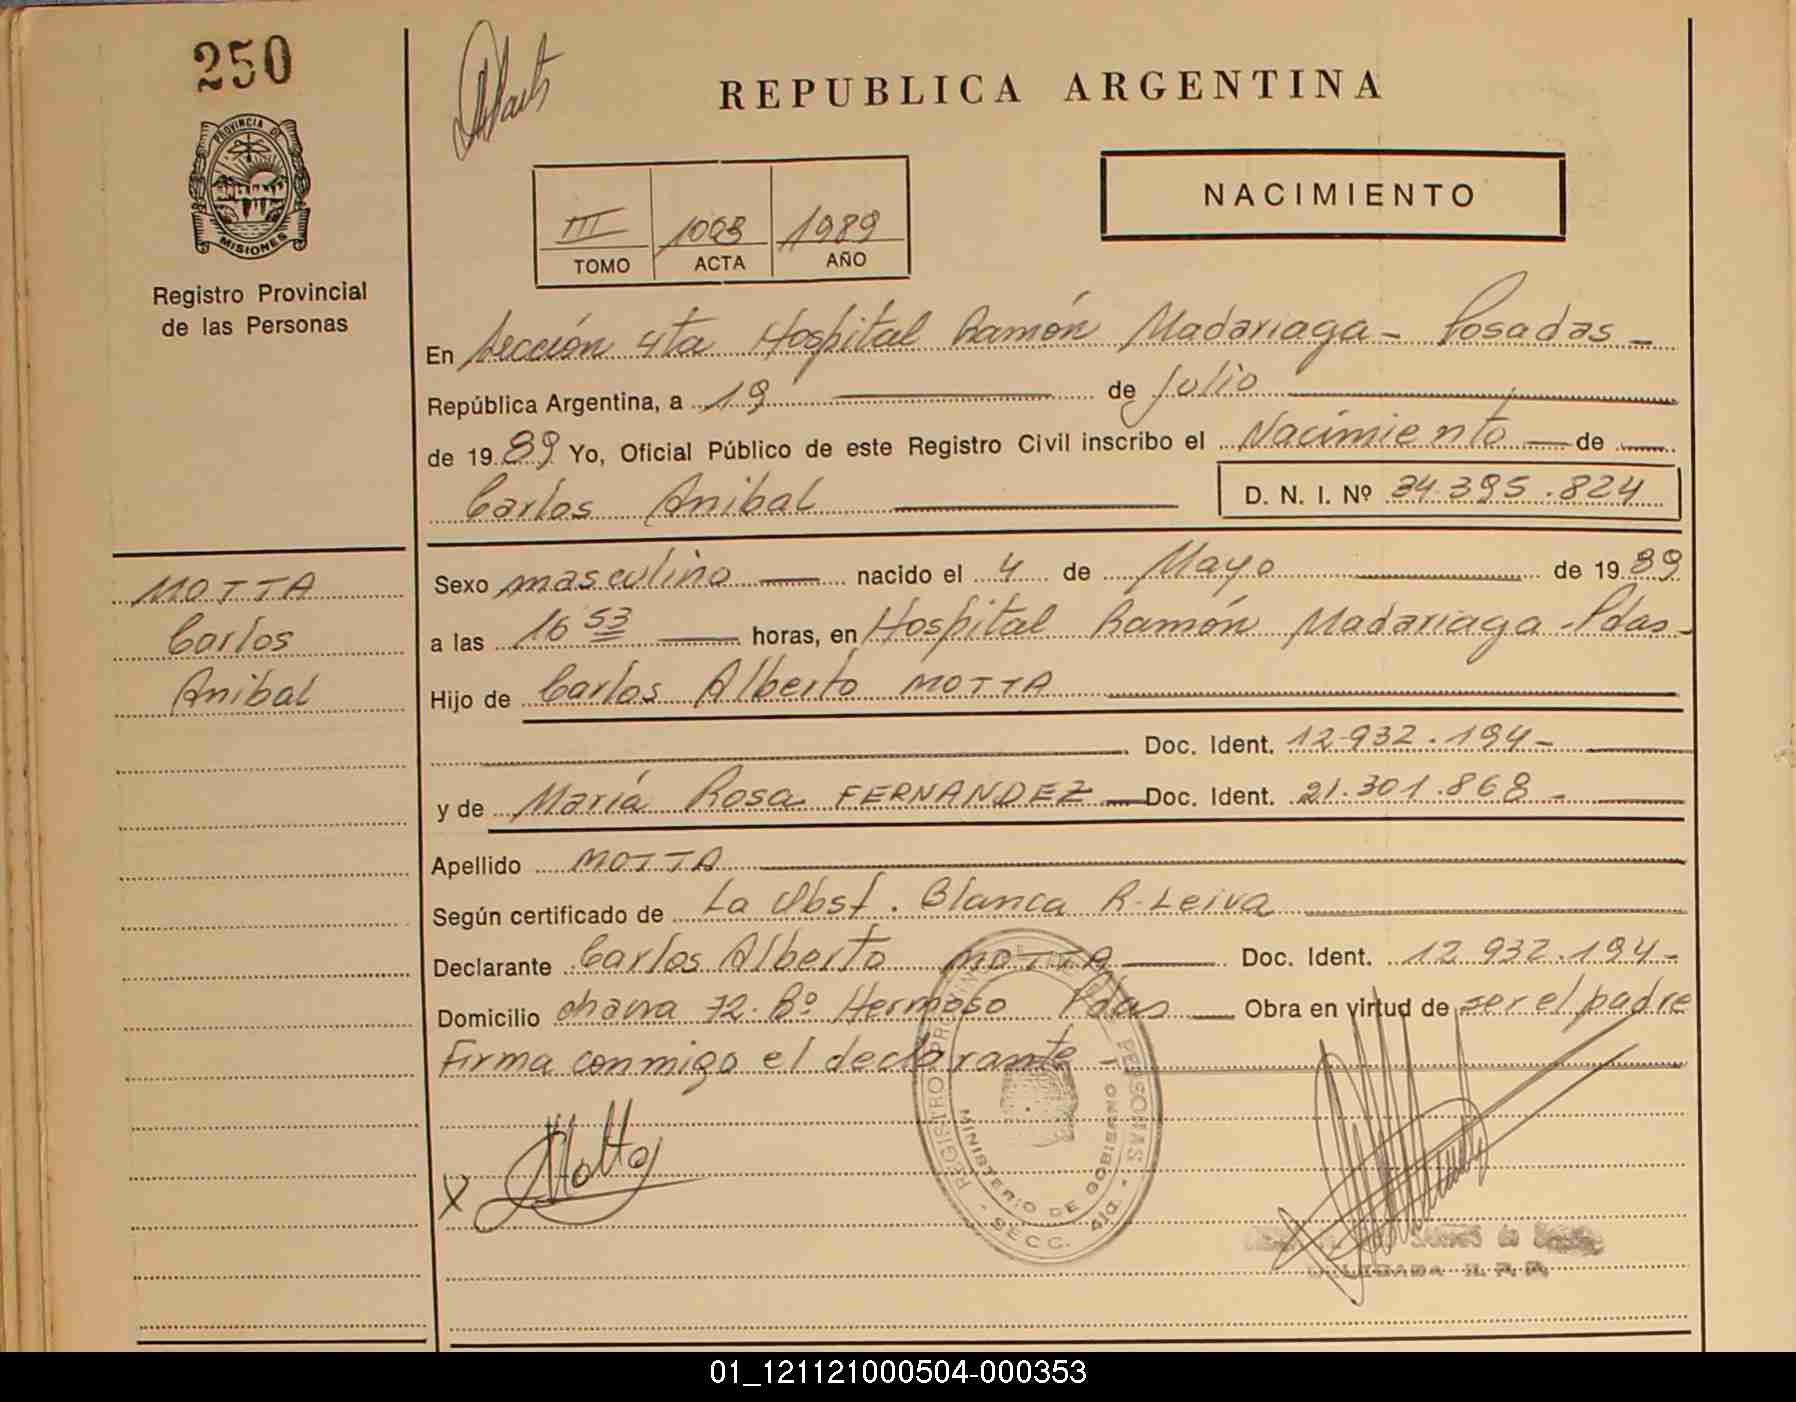 250
REPUBLICA ARGENTINA
PROVINCIA DE
MISIONES
NACIMIENTO
III 1989
TOMO ACTA AÑO
Registro Provincial
de las Personas
En Sección 4ta Hospital Ramón Madariaga - Posadas -
República Argentina, a 19 de Julio
de 1989 Yo, Oficial Público de este Registro Civil inscribo el Nacimiento de
Carlos Anibal D. N. I. Nº 34.395.824
MOTTA
Carlos
Anibal
Sexo masculino nacido el 4 de Mayo de 1989
a las 16 53 horas, en Hospital Ramón Madariaga - Pdas -
Hijo de Carlos Alberto MOTTA
Doc. Ident. 12.932.194 -
y de María Rosa FERNANDEZ Doc. Ident. 21.301.868 -
Apellido MOTTA
Según certificado de La Obst. Blanca R. Leiva
Declarante Carlos Alberto MOTTA Doc. Ident. 12.932.194 -
Domicilio chacra 72. Bº Hermoso Pdas Obra en virtud de ser el padre
Firma conmigo el declarante
X Motta
REGISTRO PROVINCIAL DE LAS PERSONAS
MINISTERIO DE GOBIERNO
- SECC. 4ta. -
DELEGADA R. P. P.
01_121121000504-000353